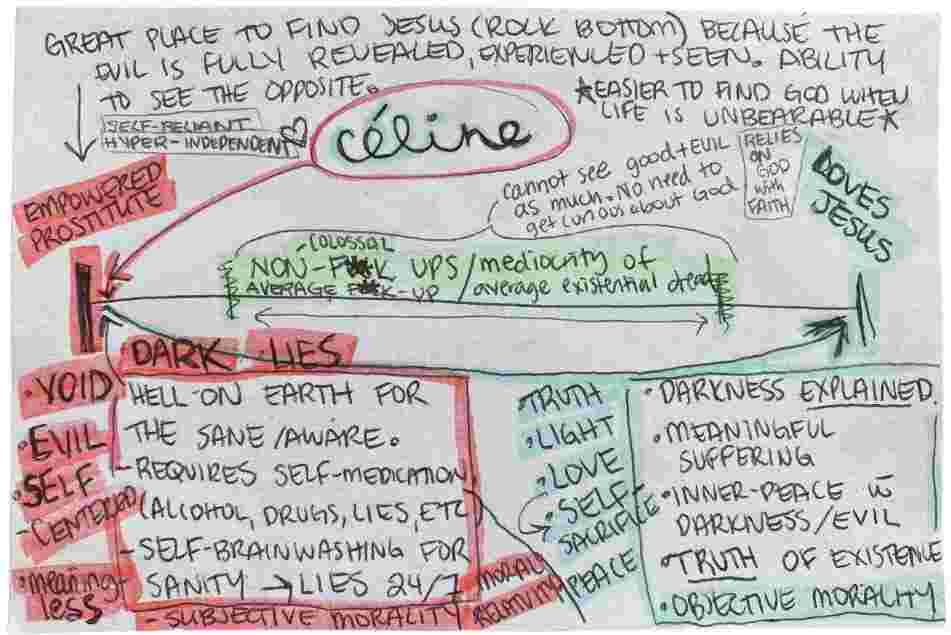 GREAT PLACE TO FIND JESUS (ROCK BOTTOM) BECAUSE THE
EVIL IS FULLY REVEALED, EXPERIENCED + SEEN. ABILITY
TO SEE THE OPPOSITE.
*EASIER TO FIND GOD WHEN
LIFE IS UNBEARABLE*
SELF-RELIANT
HYPER-INDEPENDENT
céline
EMPOWERED
PROSTITUTE
cannot see good + EVIL
as much. No need to
get curious about God
RELIES
ON
GOD
with
FAITH
LOVES
JESUS
-COLOSSAL
NON-F**K UPS / mediocrity of
AVERAGE F**K-UP / average existential dread
DARK LIES
• VOID
• EVIL
• SELF
- CENTERED
• meaning-
less
HELL ON EARTH FOR
THE SANE/AWARE.
- REQUIRES SELF-MEDICATION
(ALCOHOL, DRUGS, LIES, ETC)
- SELF-BRAINWASHING FOR
SANITY → LIES 24/7
- SUBJECTIVE MORALITY
MORAL
RELATIVITY
• TRUTH
• LIGHT
• LOVE
• SELF-
SACRIFICE
• PEACE
• DARKNESS EXPLAINED.
• MEANINGFUL
SUFFERING
• INNER-PEACE in
DARKNESS/EVIL
• TRUTH OF EXISTENCE
• OBJECTIVE MORALITY